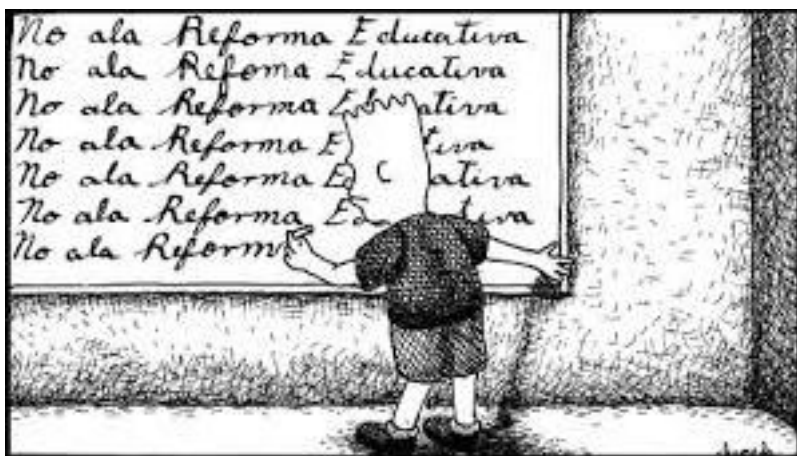 No ala Reforma Educativa
No ala Refoma Educativa
No ala Reforma Educativa
No ala Reforma Educativa
No ala Reforma Educativa
No ala Reforma Educativa
No ala Reforma